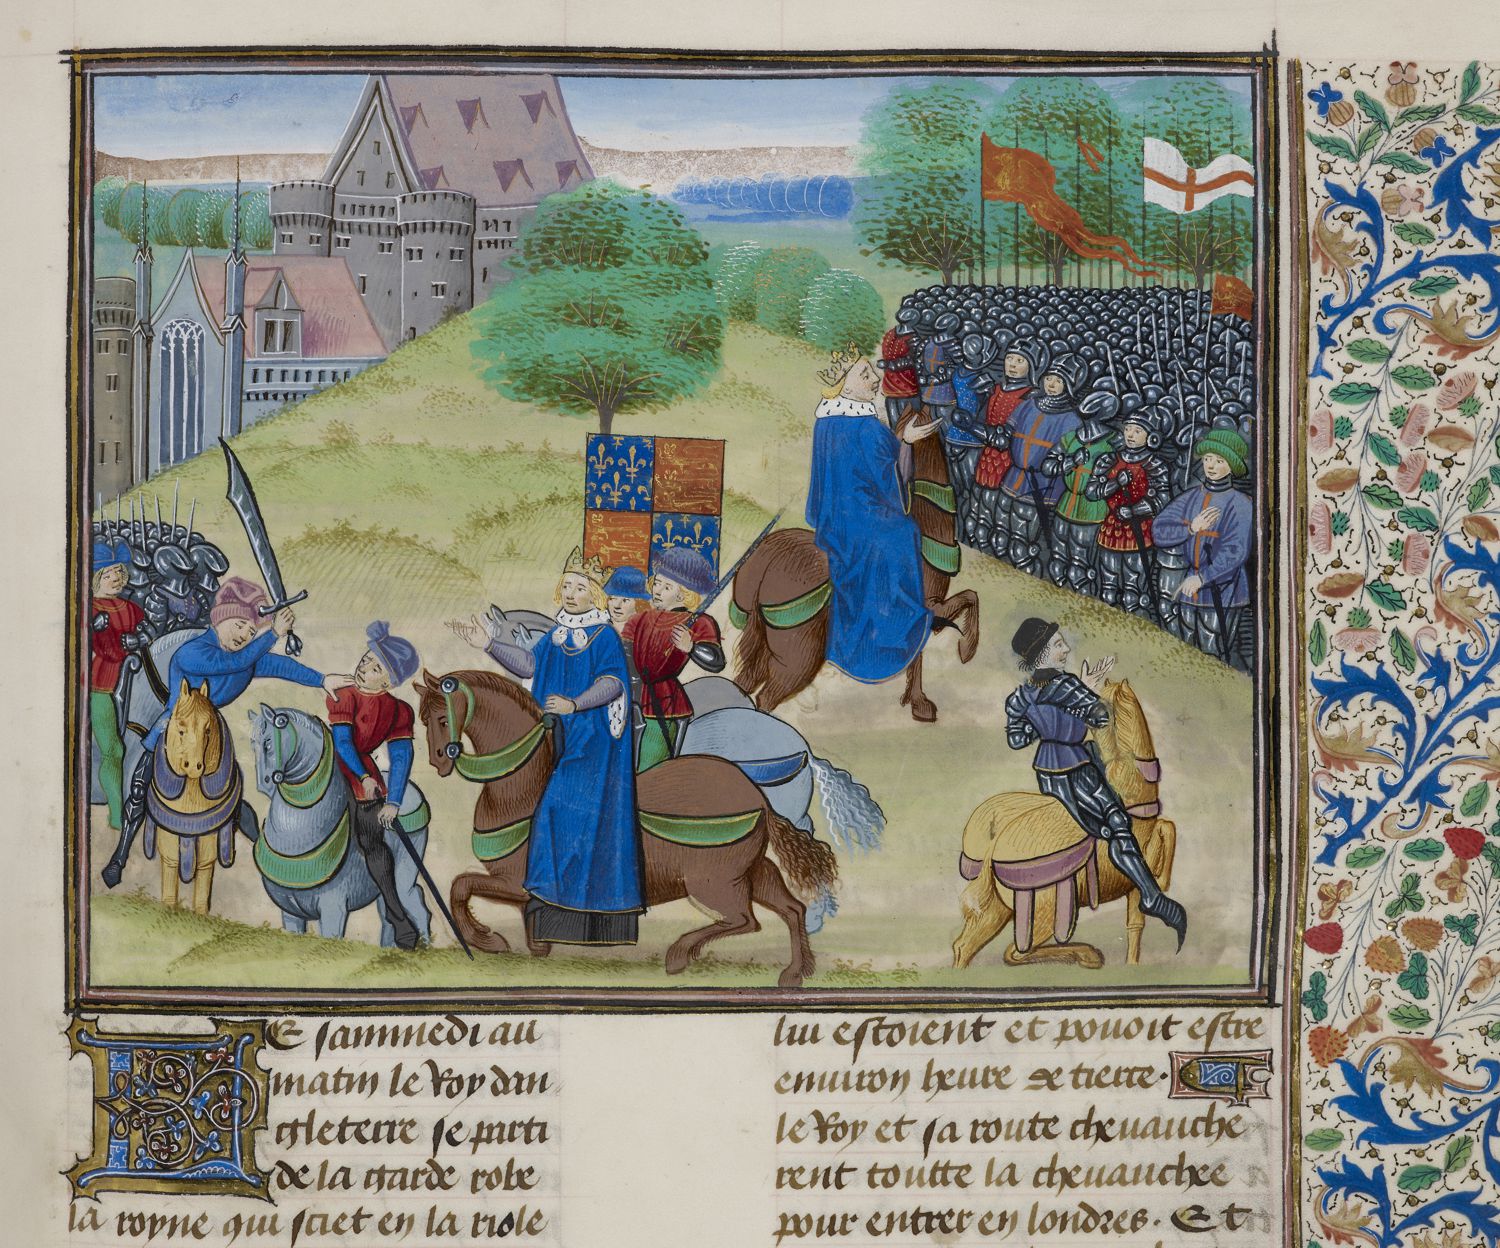 LE sammedi au
matin le Roy dan
gleterre se parti
de la garde robe
la royne qui sciet en la riole
lui estoient et pouoit estre
enuiron heure de tierce.
le Roy et sa route cheuauche
rent toutte la cheuauchee
pour entrer en londres. Et